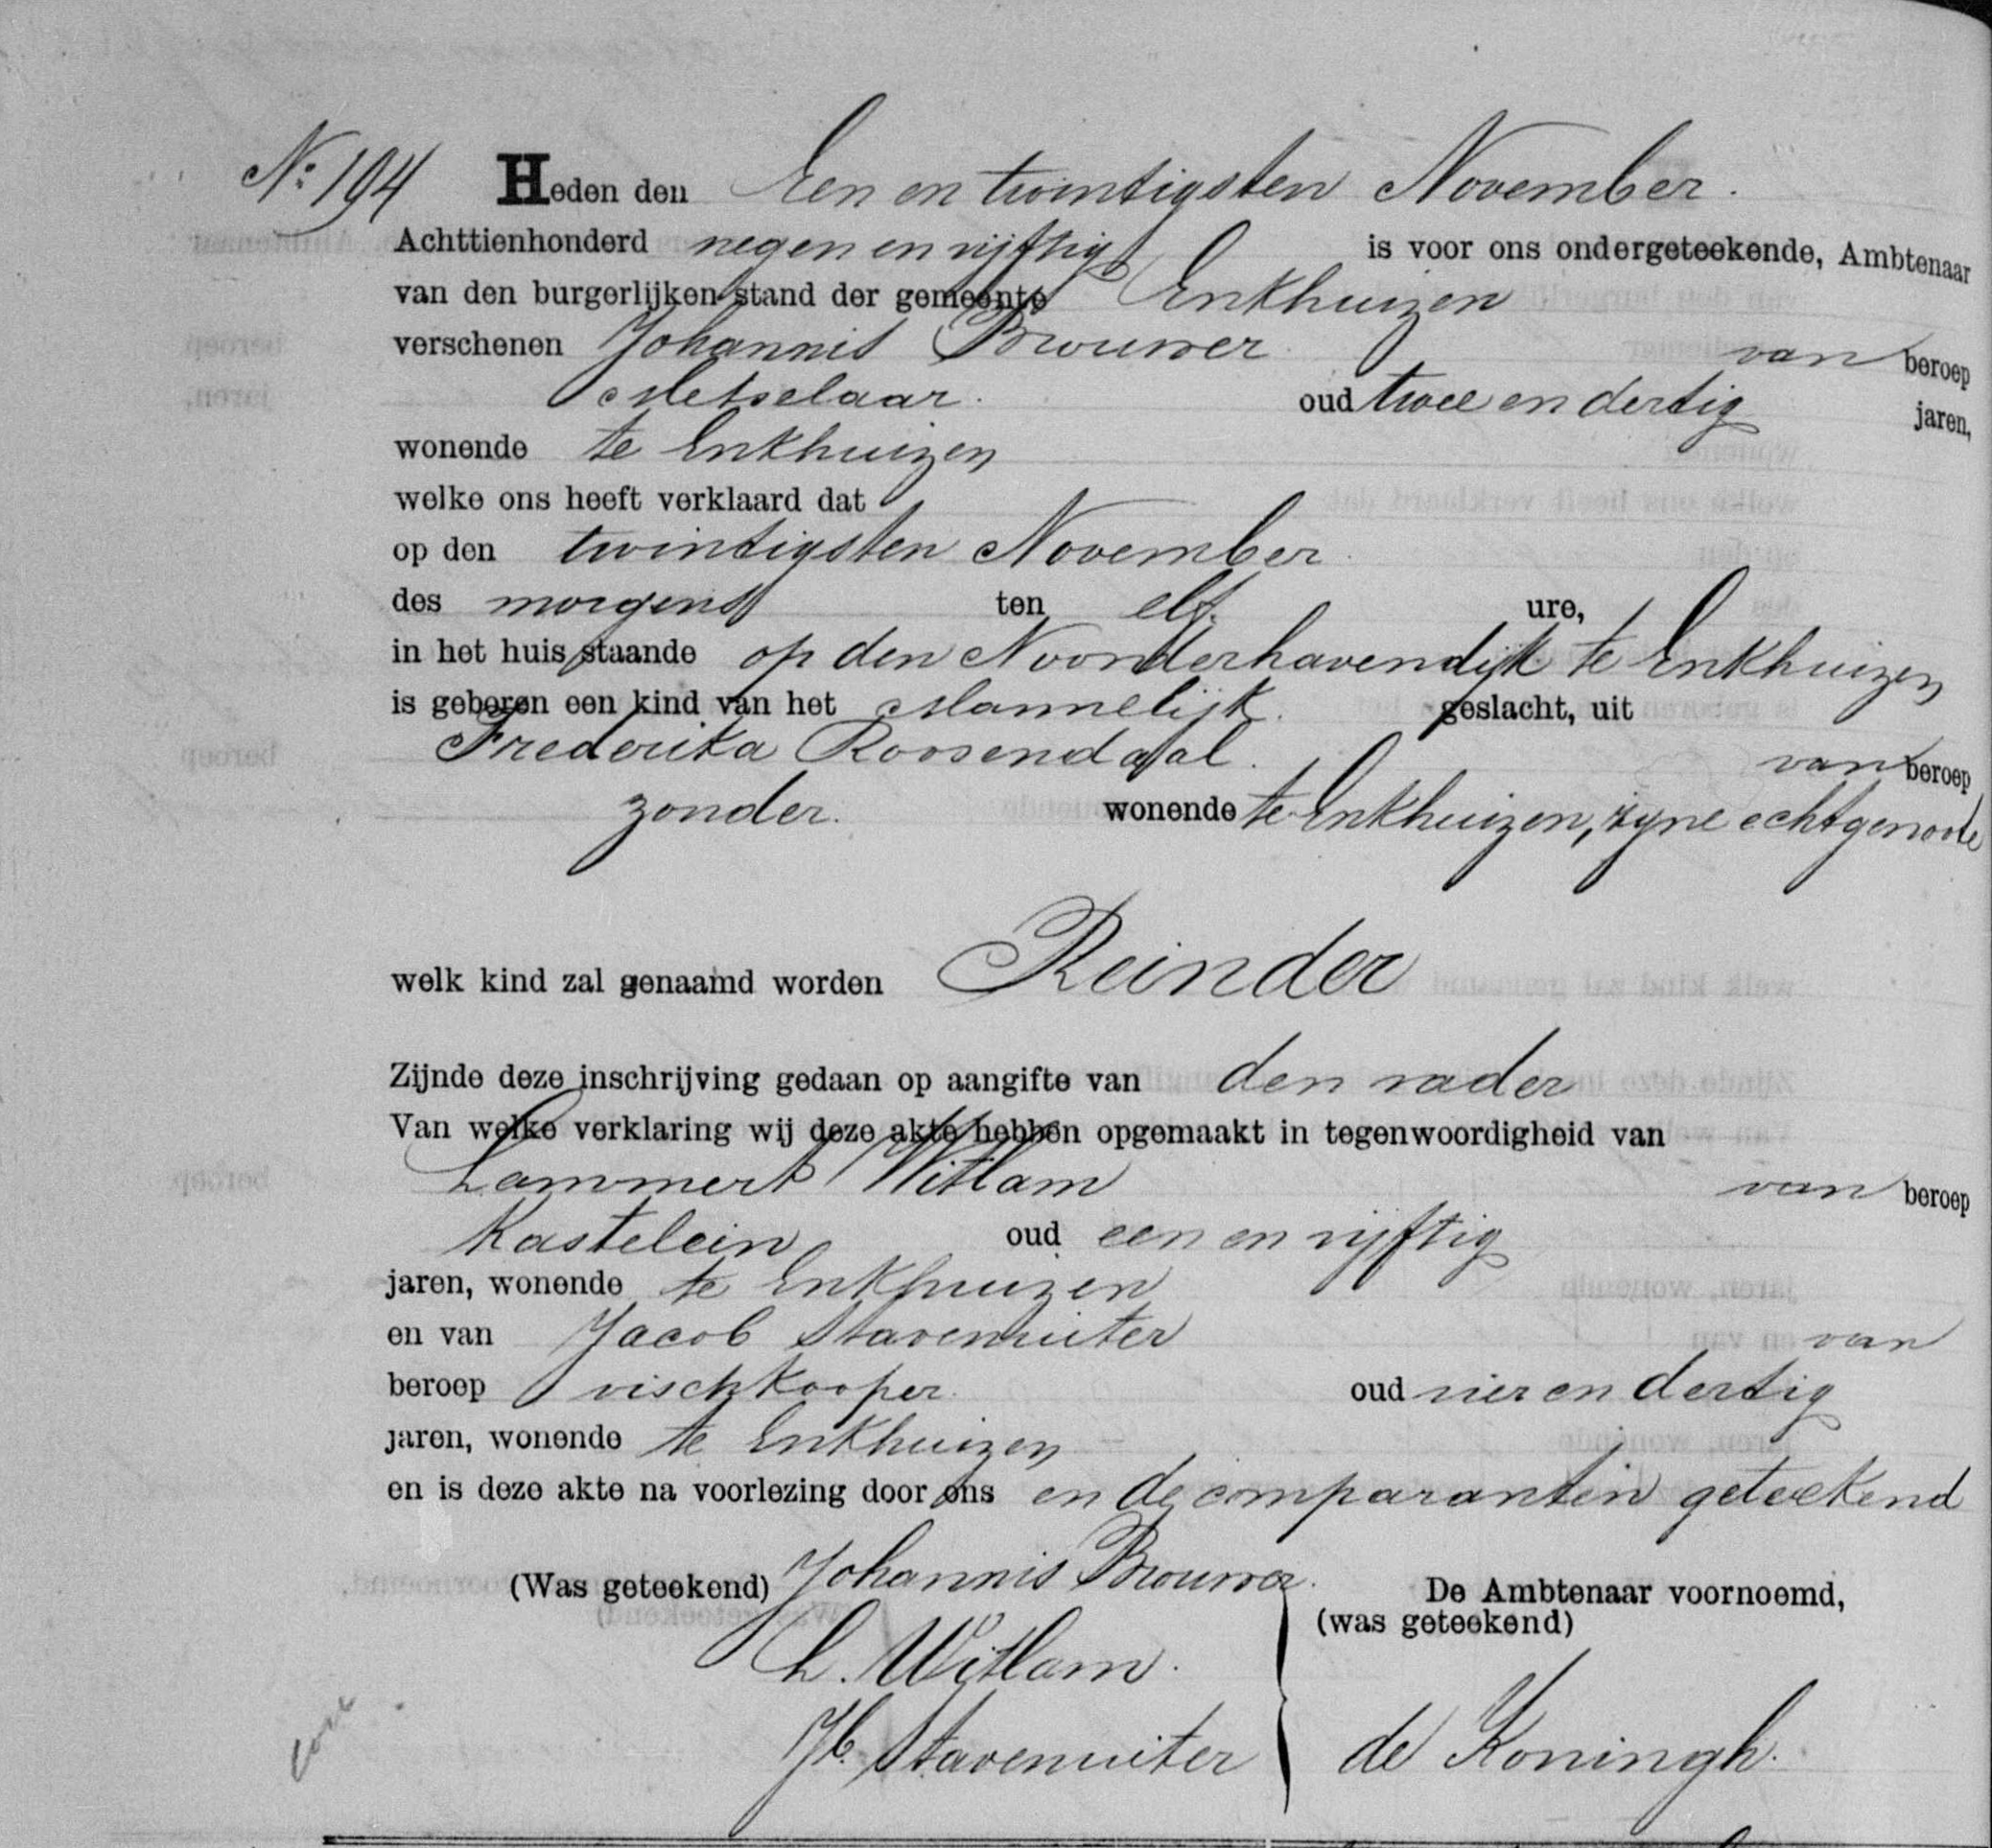 No: 194 Heden den Een en twintigsten November.
Achttienhonderd negen en vijftig is voor ons ondergeteekende, Ambtenaar
van den burgerlijken stand der gemeente Enkhuizen
verschenen Johannis Brouwer van beroep
Metselaar. oud twee en dertig jaren,
wonende te Enkhuizen
welke ons heeft verklaard dat
op den twintigsten November.
des morgens ten elf. ure,
in het huis staande op den Noorderhavendijk te Enkhuizen
is geboren een kind van het Mannelijk. geslacht, uit
Frederika Roosendaal. van beroep
zonder. wonende te Enkhuizen, zyne echtgenoote
welk kind zal genaamd worden Reinder
Zijnde deze inschrijving gedaan op aangifte van den vader
Van welke verklaring wij deze akte hebben opgemaakt in tegenwoordigheid van
Lammert Witlam van beroep
Kastelein oud een en vijftig
jaren, wonende te Enkhuizen
en van Jacob Stavenuiter van
beroep vischkooper. oud vier en dertig
jaren, wonende te Enkhuizen
en is deze akte na voorlezing door ons en de comparanten geteekend
(Was geteekend) Johannis Brouwer.
De Ambtenaar voornoemd,
(was geteekend)
L. Witlam.
Jb. Stavenuiter de Koningh.